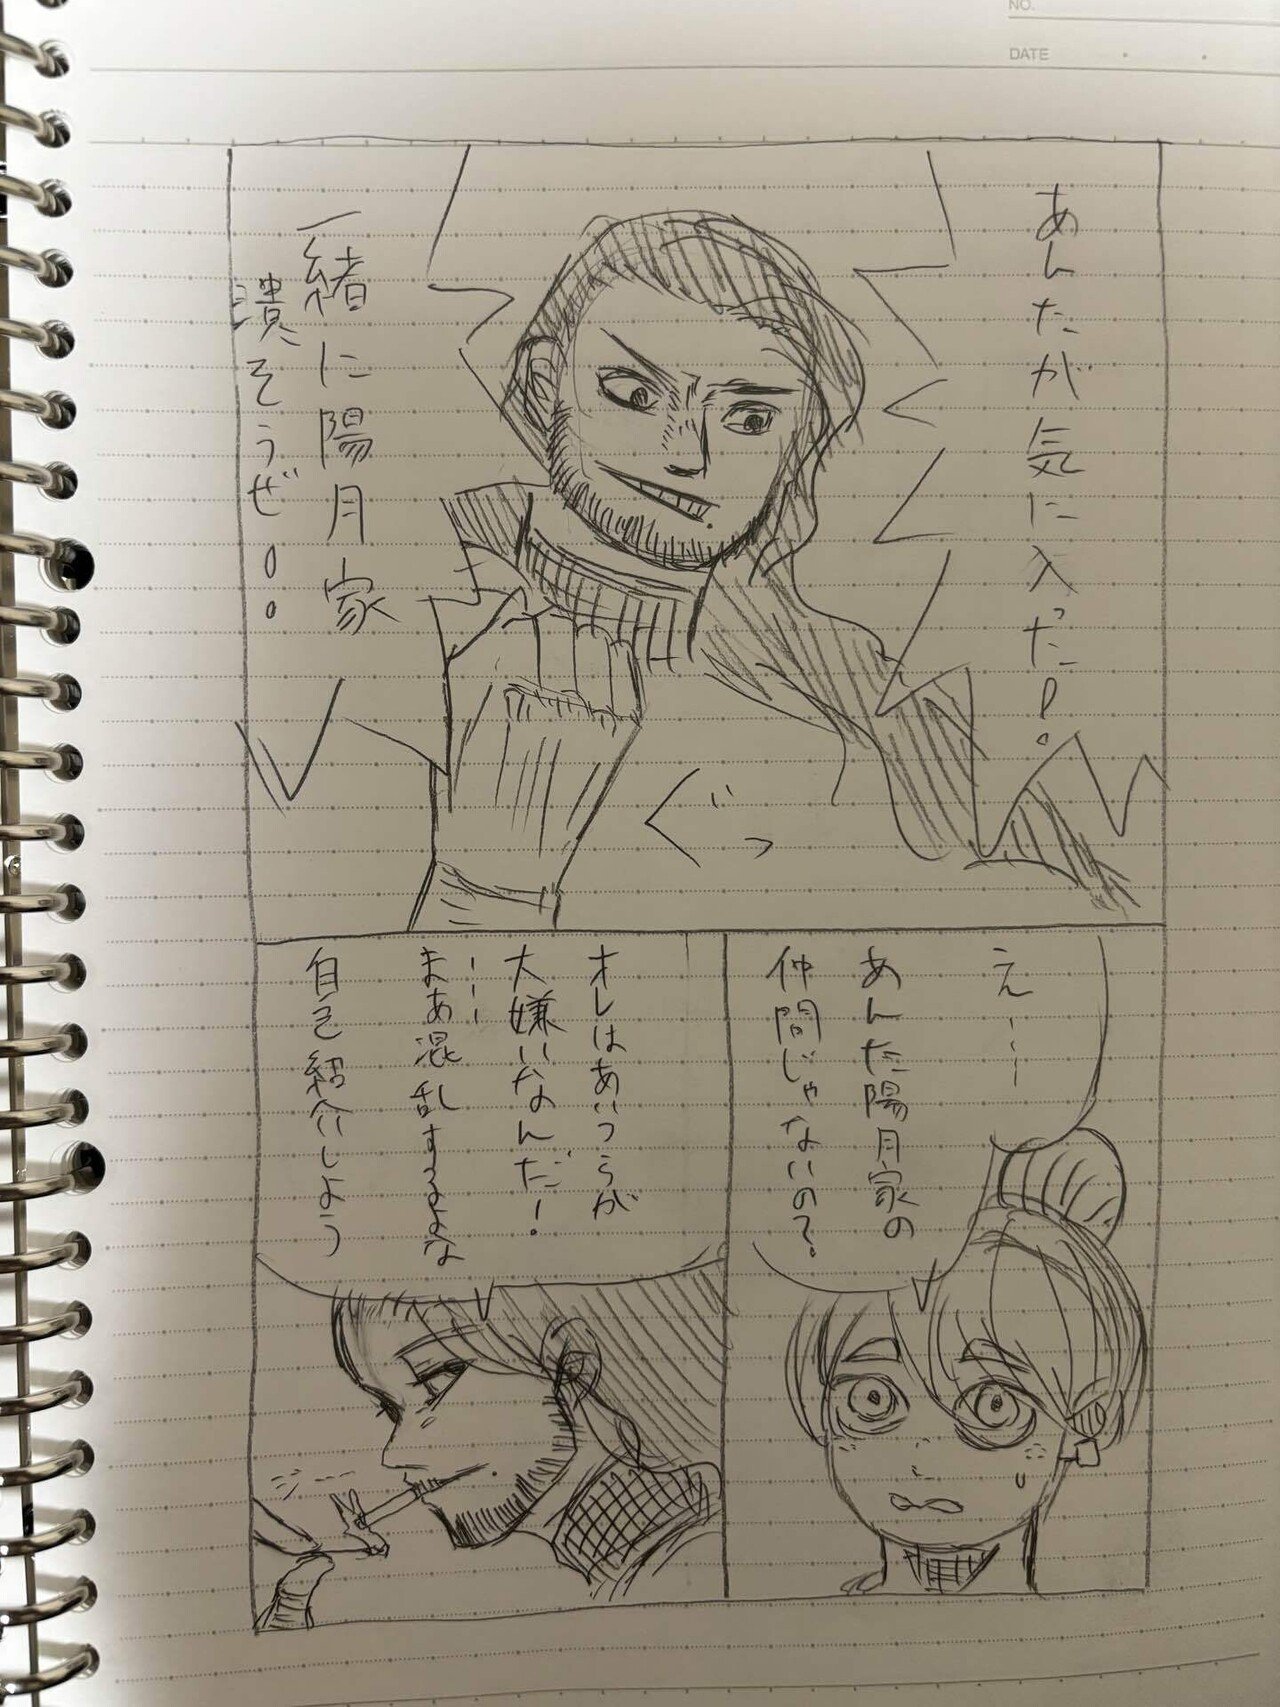 NO.
DATE
あんたが気に入った!
一緒に陽月家
潰そうぜ!!
ぐっ
え…
あんた陽月家の
仲間じゃないの?
オレはあいつらが
大嫌いなんだ!
…
まあ混乱するよな
自己紹介しよう